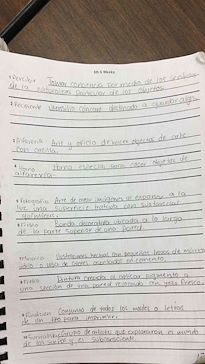 1st 6 Weeks
1 Percibir Tomar conciencia por medio de los sentidos
de la naturaleza particular de los objetos.
2 Recipiente Utensilio cóncavo destinado a guardar algo
3 Alfarería Arte y oficio de hacer objetos de
con arcilla.
4 Horno Horno especial para cocer objetos de
alfarería.
5 Fotografía Arte de crear imágenes al exponer a la
luz una superficie tratada con sustancias
químicas.
6 Friso Banda decorativa ubicada a lo largo
de la parte superior de una pared.
7 Mosaico hechas con pequeños trozos de
vidrio o de
8 Fresco Pintura creada al aplicar pigmento a
una sección de una pared revestida con yeso fresco.
Conjunto de todos los moldes o letras
de un tipo para imprimir.
10 Surrealistas Grupo de artistas que exploraron el mundo
de los sueños y el subconsciente.